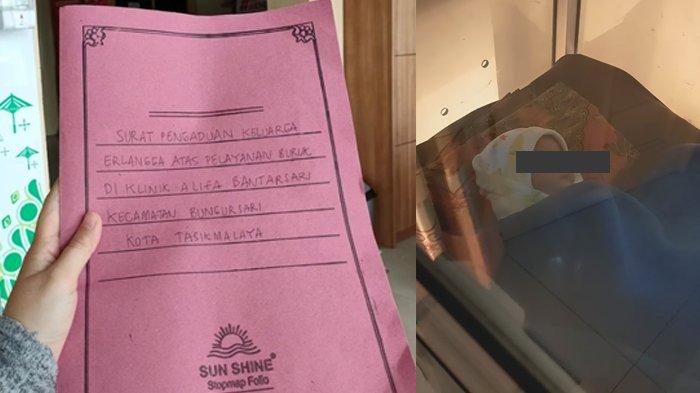 SURAT PENGADUAN KELUARGA
ERLANGGA ATAS PELAYANAN BURUK
DI KLINIK ALIFA BANTARSARI
KECAMATAN BUNGURSARI
KOTA TASIKMALAYA
SUN SHINE®
Stopmap Folio